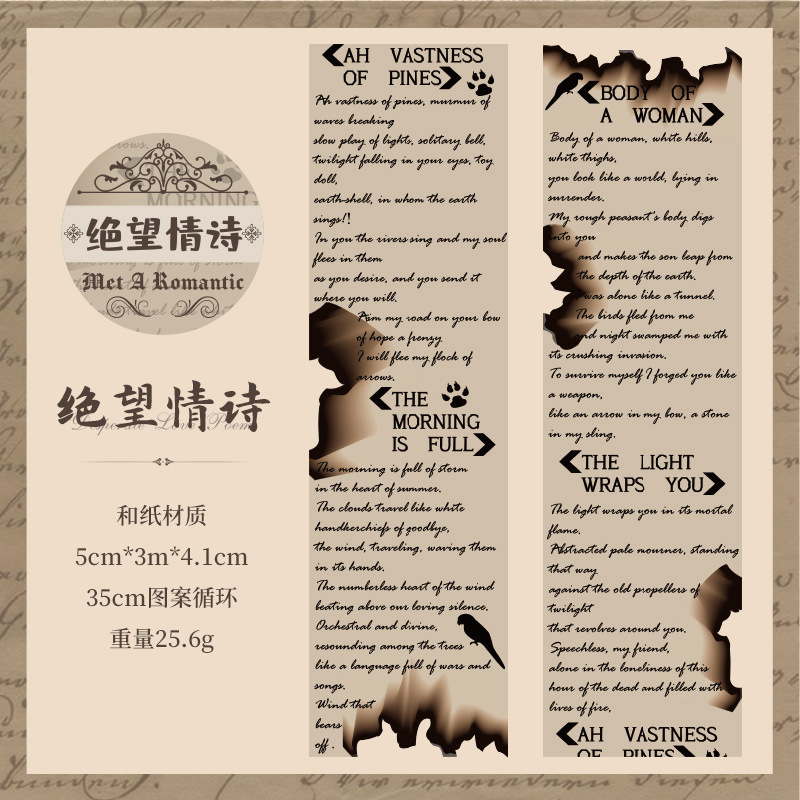 MORNING
绝望情诗
Met A Romantic
绝望情诗
Desperate Love Poem
和纸材质
5cm*3m*4.1cm
35cm图案循环
重量25.6g
AH VASTNESS
OF PINES
Ah vastness of pines, murmur of
waves breaking
slow play of lights, solitary bell,
twilight falling in your eyes, toy
doll,
earth-shell, in whom the earth
sings!!
In you the rivers sing and my soul
flees in them
as you desire, and you send it
where you will.
Aim my road on your bow
of hope a frenzy
I will flee my flock of
arrows.
THE
MORNING
IS FULL
The morning is full of storm
in the heart of summer.
The clouds travel like white
handkerchiefs of goodbye,
the wind, traveling, waving them
in its hands.
The numberless heart of the wind
beating above our loving silence.
Orchestral and divine,
resounding among the trees
like a language full of wars and
songs.
Wind that
bears
off.
BODY OF
A WOMAN
Body of a woman, white hills,
white thighs,
you look like a world, lying in
surrender.
My rough peasant's body digs
into you
and makes the son leap from
the depth of the earth.
I was alone like a tunnel.
The birds fled from me
and night swamped me with
its crushing invasion.
To survive myself I forged you like
a weapon,
like an arrow in my bow, a stone
in my sling.
THE LIGHT
WRAPS YOU
The light wraps you in its mortal
flame.
Abstracted pale mourner, standing
that way
against the old propellers of
twilight
that revolves around you.
Speechless, my friend,
alone in the loneliness of this
hour of the dead and filled with
lives of fire,
AH VASTNESS
OF PINES